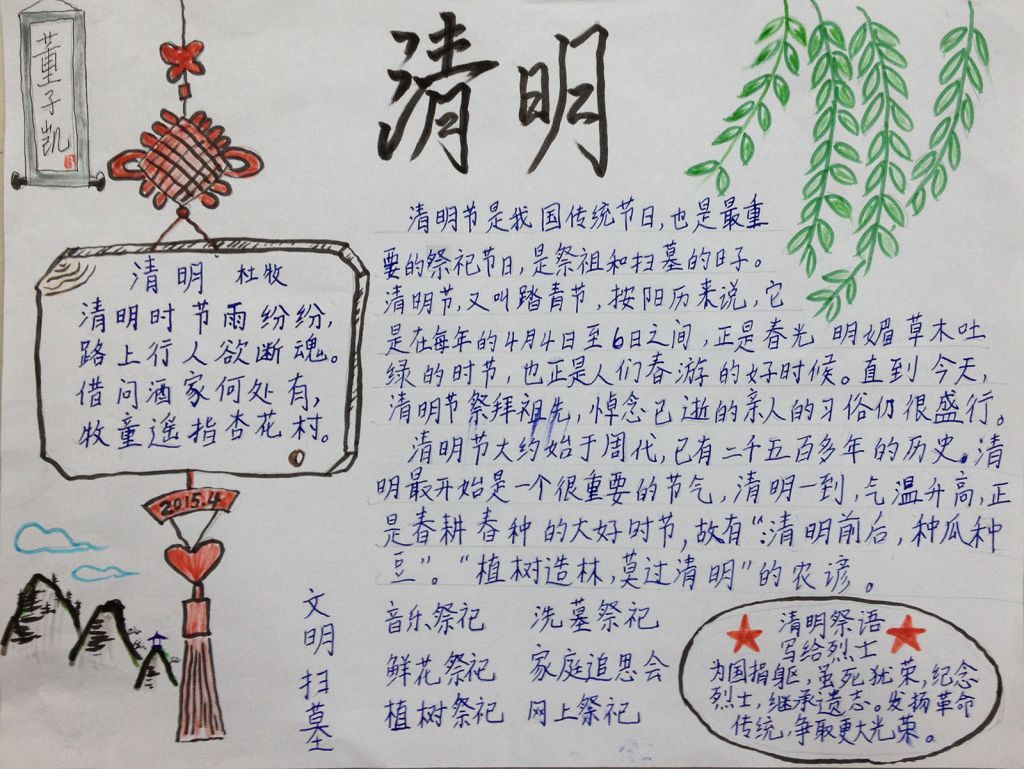 董子凯
清明
清明 杜牧
清明时节雨纷纷,
路上行人欲断魂。
借问酒家何处有,
牧童遥指杏花村。
2015.4
清明节是我国传统节日,也是最重
要的祭祀节日,是祭祖和扫墓的日子。
清明节,又叫踏青节,按阳历来说,它
是在每年的4月4日至6日之间,正是春光 明媚草木吐
绿的时节,也正是人们春游的好时候。直到今天,
清明节祭拜祖先,悼念已逝的亲人的习俗仍很盛行。
清明节大约始于周代,已有二千五百多年的历史。清
明最开始是一个很重要的节气,清明一到,气温升高,正
是春耕春种的大好时节,故有“清明前后,种瓜种
豆”。“植树造林,莫过清明”的农谚。
文明扫墓
音乐祭祀 洗墓祭祀
鲜花祭祀 家庭追思会
植树祭祀 网上祭祀
清明祭语
写给烈士
为国捐躯,虽死犹荣,纪念
烈士,继承遗志。发扬革命
传统,争取更大光荣。